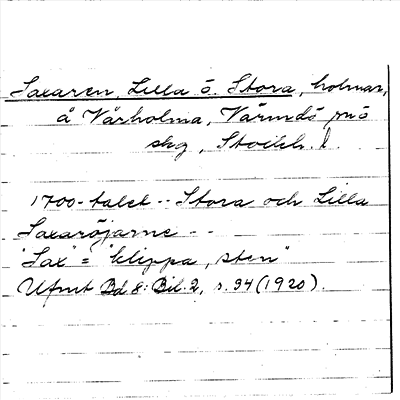 Saxaren, Lilla o. Stora, holmar,
å Vårholma, Värmdö
skg, Stockh. l.
1700-talet -- Stora och Lilla
Saxaröjarne --
"Sax" = "klippa, sten"
Ufmt Bd 8: Bil. 2, s. 94 (1920).